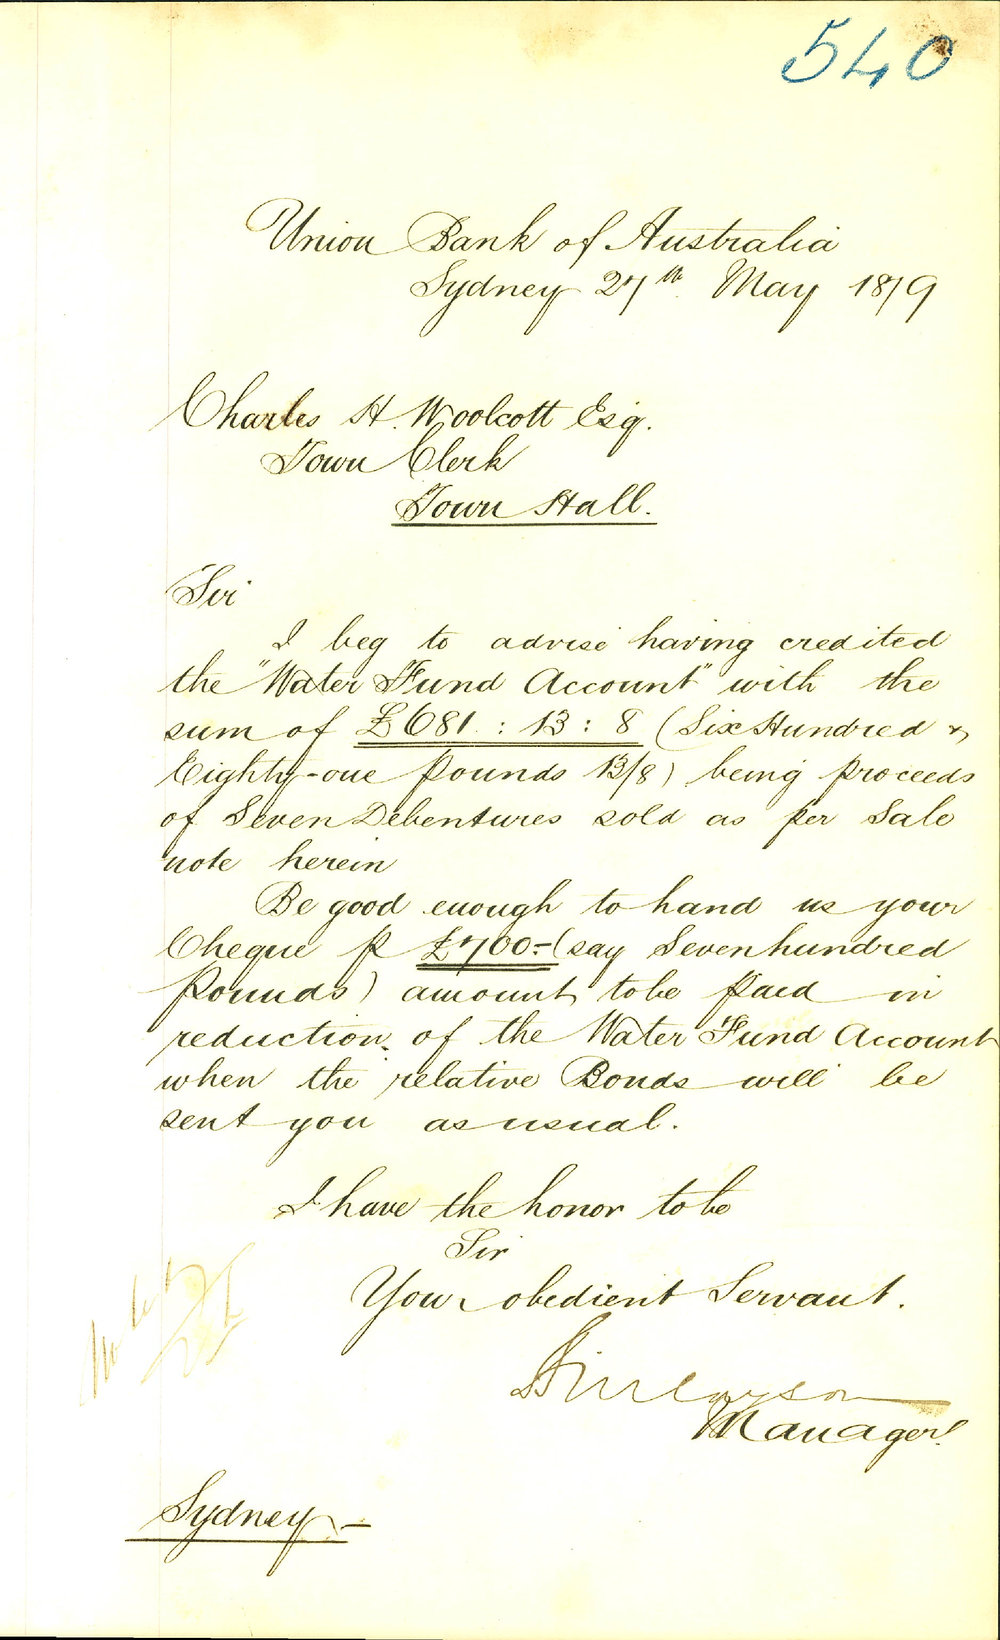 540
Union Bank of Australia
Sydney 27th May 1879
Charles H. Woolcott Esq.
Town Clerk
Town Hall.
Sir
I beg to advise having credited
the "Water Fund Account" with the
sum of £681 : 13 : 8 (Six Hundred &
Eighty-one pounds 13/8) being proceeds
of Seven Debentures sold as per Sale
note herein
Be good enough to hand us your
Cheque p £700:- (say Seven hundred
Pounds) amount to be paid in
reduction of the Water Fund Account
when the relative Bonds will be
sent you as usual.
I have the honor to be
Sir
Your obedient Servant.
Finlayson
Manager
Sydney -